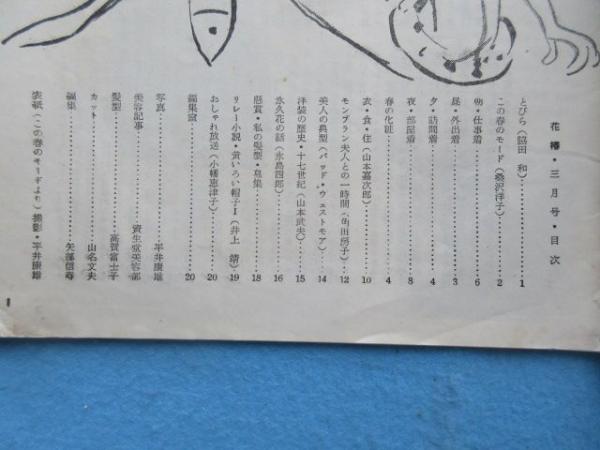 花椿・三月号・目次
とびら（脇田 和）…………1
この春のモード（桑沢洋子）…………2
朝・仕事着…………6
昼・外出着…………3
夕・訪問着…………4
夜・部屋着…………8
春の化粧…………4
衣・食・住（山本嘉次郎）…………10
モンブラン夫人との一時間（角田房子）…………12
美人の典型（バッド・ウェストモア）…………14
洋装の歴史・十七世紀（山本武夫）…………15
永久花の話（永島四郎）…………16
懸賞・私の髪型・発集…………18
リレー小説・黄いろい帽子Ⅰ（井上 靖）…………19
おしゃれ放送（小幡恵津子）…………20
編集室…………20
写真…………平井康雄
美容記事…………資生堂美容部
髪型…………高賀富士子
カット…………山名文夫
編集…………矢部信寿
表紙（この春のモードより）撮影・平井康雄
1